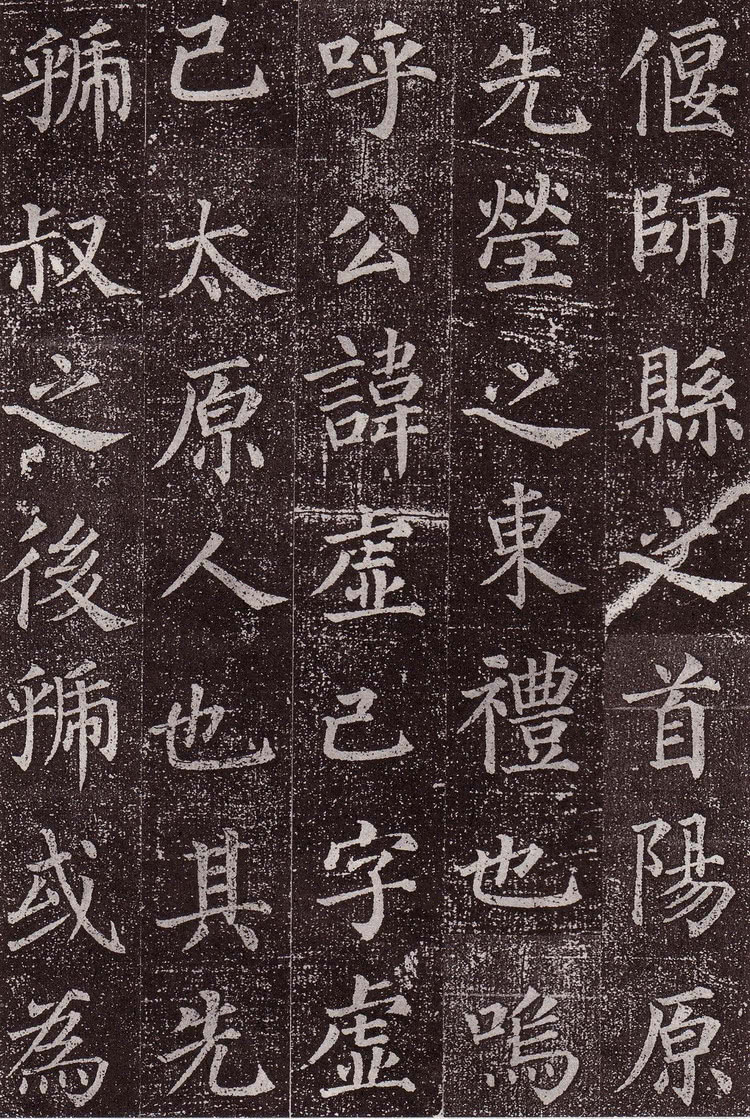 偃師縣之首陽原
先塋之東禮也嗚
呼公諱虚己字虚
己太原人也其先
虢叔之後虢或為